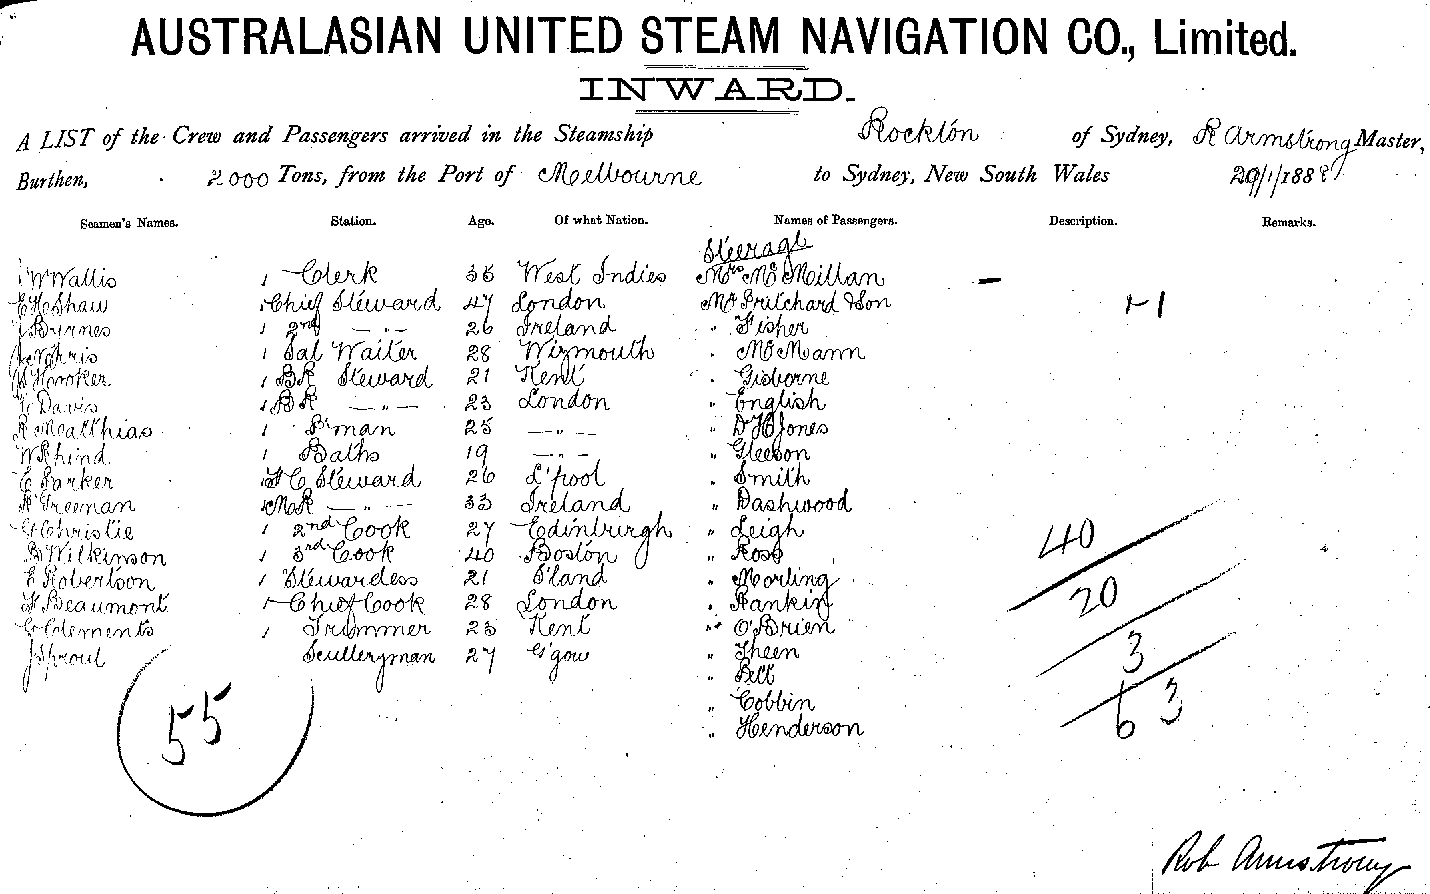 AUSTRALASIAN UNITED STEAM NAVIGATION CO., Limited.
INWARD.
A LIST of the Crew and Passengers arrived in the Steamship Rockton of Sydney, R Armstrong Master,
Burthen, 2000 Tons, from the Port of Melbourne to Sydney, New South Wales 29/1/1888
Seamen's Names. Station. Age. Of what Nation. Names of Passengers. Description. Remarks.
Steerage
W Wallis 1 Clerk 35 West Indies Mrs McMillan -
E H Shaw 1 Chief Steward 47 London Mr Pritchard & Son 1-1
J Byrnes 1 2nd — „ — 26 Ireland " Fisher
J Norris 1 Sal Waiter 28 Wizmouth " McMann
W Hooker 1 BR Steward 21 Kent " Gisborne
Davis 1 BR — „ — 23 London " English
R Matthias 1 P'man 25 — „ — " D H Jones
W Rhind 1 Baths 19 — „ — " Gleeson
E Parker 1 F C Steward 26 L'pool " Smith
Freeman 1 — „ — 33 Ireland " Dashwood
G Christie 1 2nd Cook 27 Edinburgh " Leigh
B Wilkinson 1 3rd Cook 40 Boston " Ross
E Robertson 1 Stewardess 21 S'land " Morling
F Beaumont 1 Chief Cook 28 London " Rankin
G Clements 1 Trimmer 23 Kent " O'Brien
J Sproul Sculleryman 27 G'gow " Sheen
" Bell
" Cobbin
" Henderson
40
20
3
63
55
Rob Armstrong